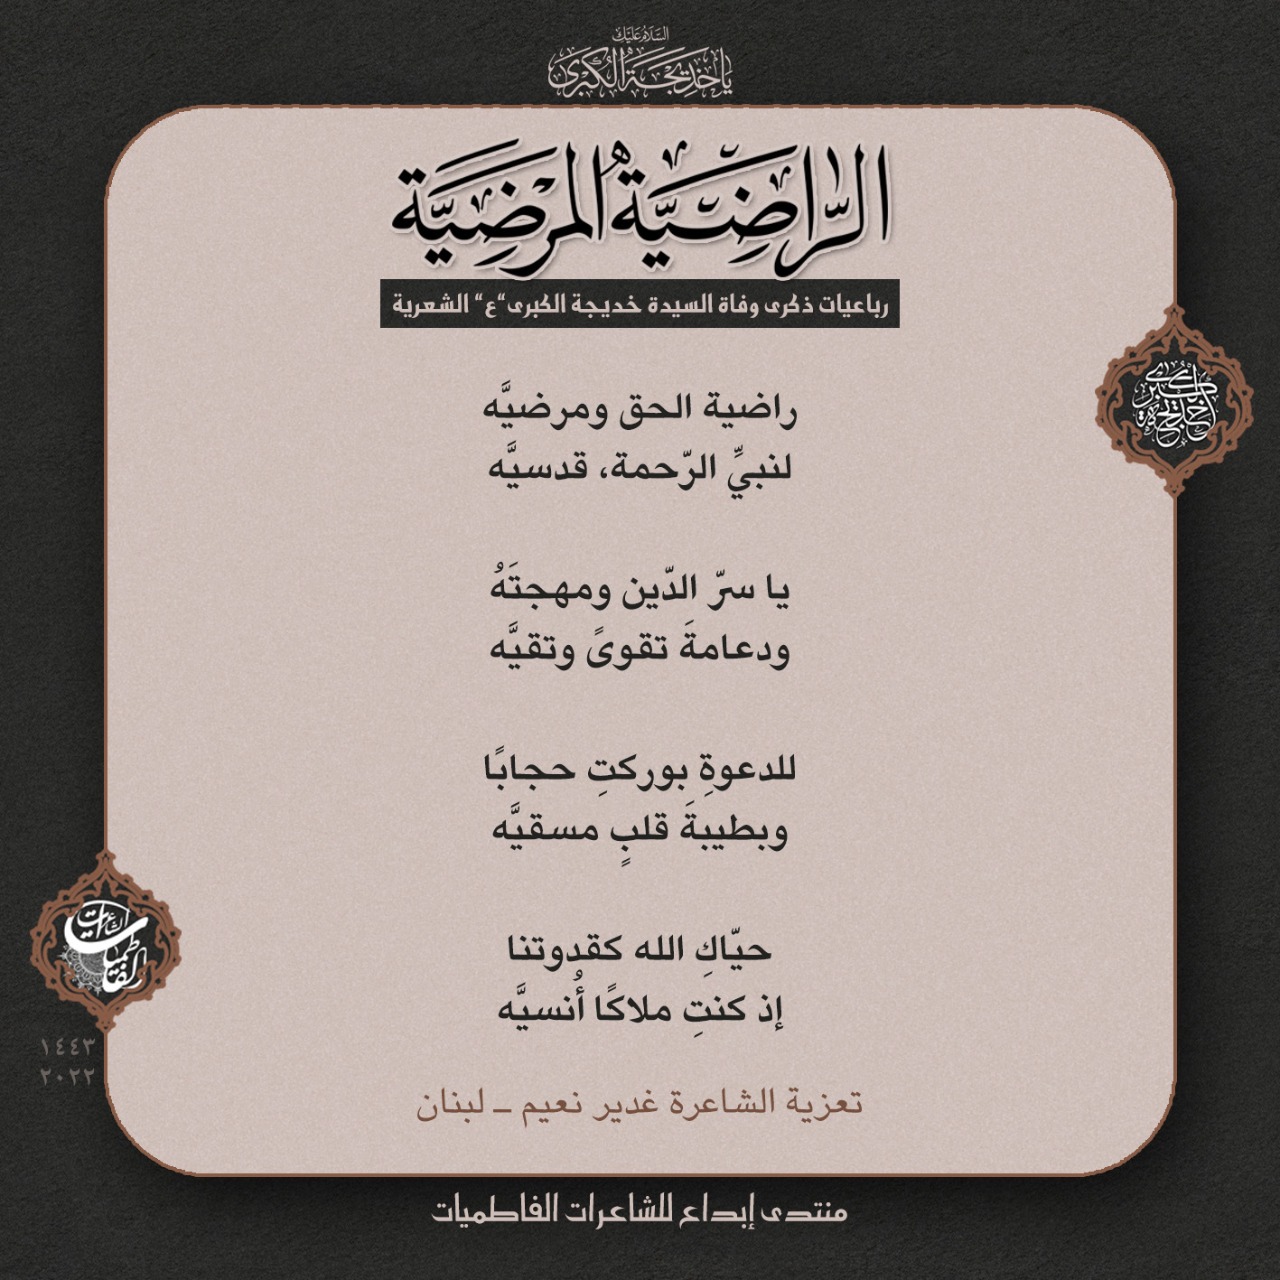 السلام عليك
يا خديجة الكبرى
الراضية المرضية
رباعيات ذكرى وفاة السيدة خديجة الكبرى“ع“ الشعرية
راضية الحق ومرضيَّه
لنبيِّ الرّحمة، قدسيَّه
يا سرّ الدّين ومهجتَهُ
ودعامةَ تقوىً وتقيَّه
للدعوةِ بوركتِ حجابًا
وبطيبةَ قلبٍ مسقيَّه
حيّاكِ الله كقدوتنا
إذ كنتِ ملاكًا أُنسيَّه
تعزية الشاعرة غدير نعيم ــ لبنان
الشاعرات
الفاطميات
١٤٤٣
٢٠٢٢
منتدى إبداع للشاعرات الفاطميات